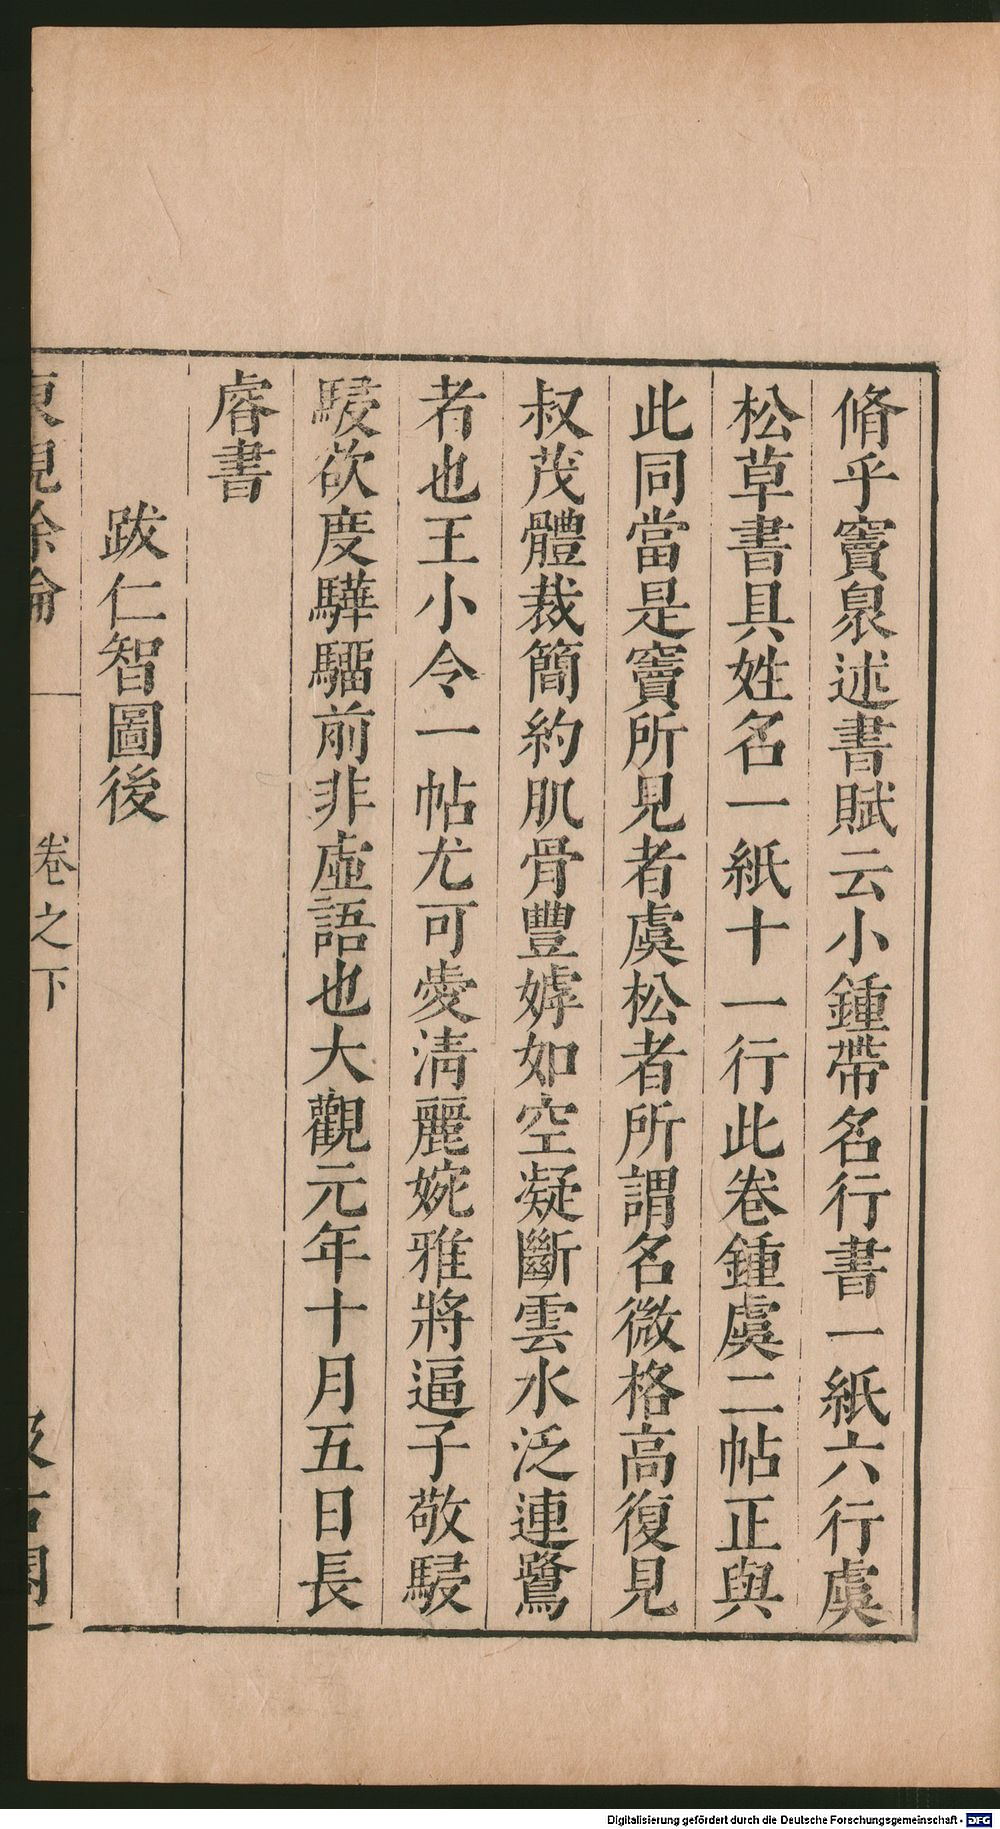 脩乎竇臮述書賦云小鍾帶名行書一紙六行虞
松草書具姓名一紙十一行此卷鍾虞二帖正與
此同當是竇所見者虞松者所謂名微格高復見
叔茂體裁簡約肌骨豐嫭如空凝斷雲水泛連鷺
者也王小令一帖尤可愛淸麗婉雅將逼子敬駸
駸欲度驊騮前非虛語也大觀元年十月五日長
睿書
跋仁智圖後
東觀餘論
卷之下
汲古閣
Digitalisierung gefördert durch die Deutsche Forschungsgemeinschaft - DFG